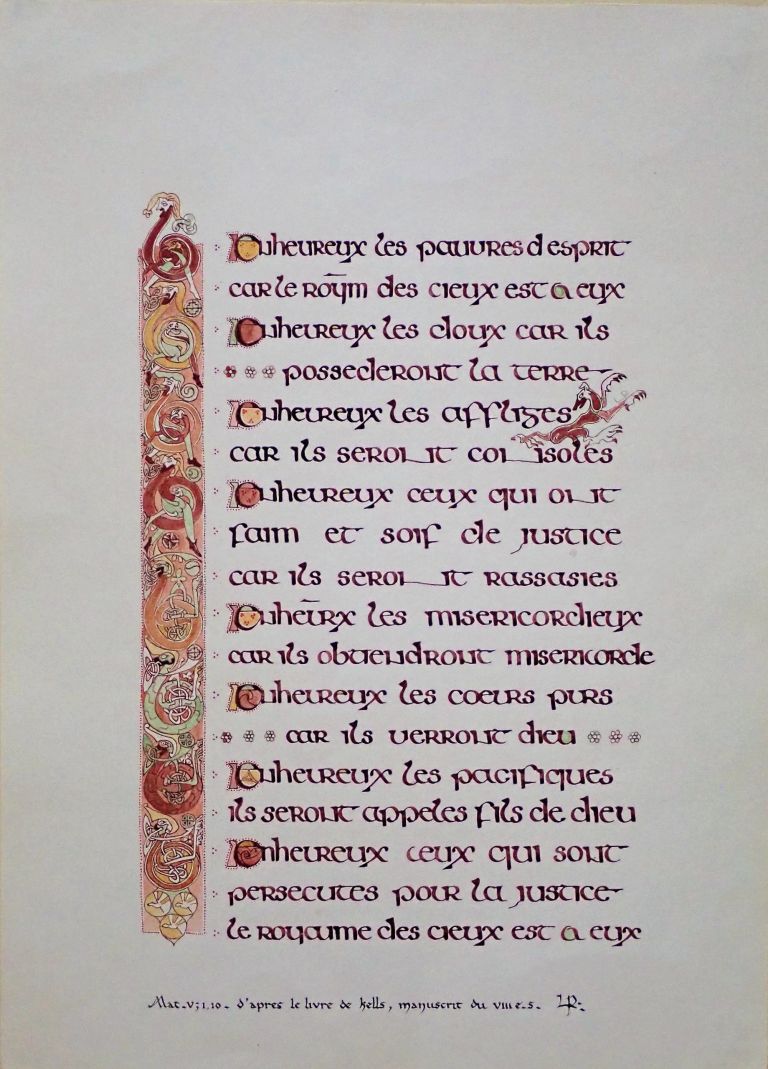 Bienheureux les pauvres d esprit
car le roȳm des cieux est a eux
Bienheureux les doux car ils
possederont la terre
Bienheureux les affliges
car ils seront consoles
Bienheureux ceux qui ont
faim et soif de justice
car ils seront rassasies
Bienheūrx les misericordieux
car ils obtiendront misericorde
Bienheureux les coeurs purs
car ils verront dieu
Bienheureux les pacifiques
ils seront appeles fils de dieu
Bienheureux ceux qui sont
persecutes pour la justice
le royaume des cieux est a eux
Mat_v;1.10_ d'apres le livre de kells, manuscrit du viii e_s_